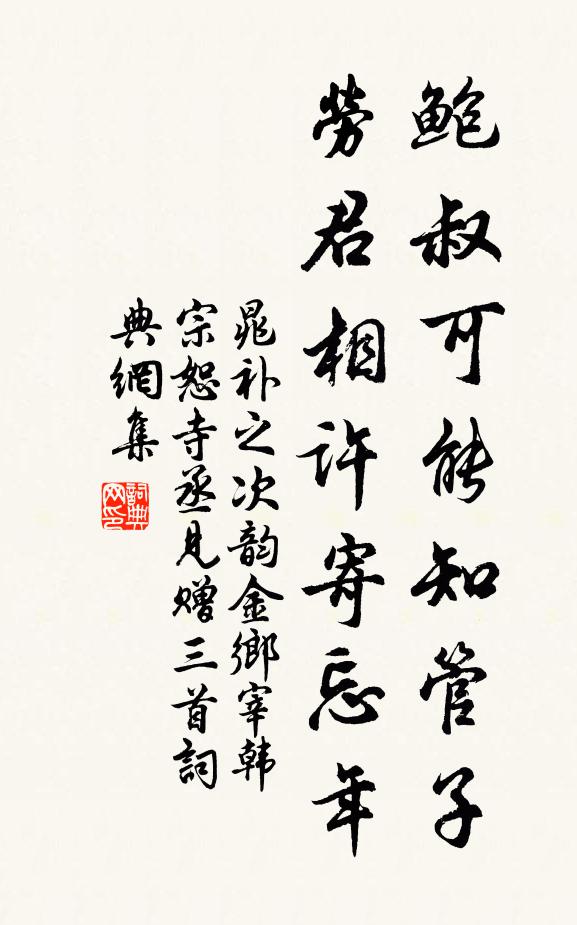 鲍叔可能知管子
劳君相许寄忘年
晁补之次韵金鄉宰韩
宗恕寺丞見赠三首詞
典網集
詞典
网印